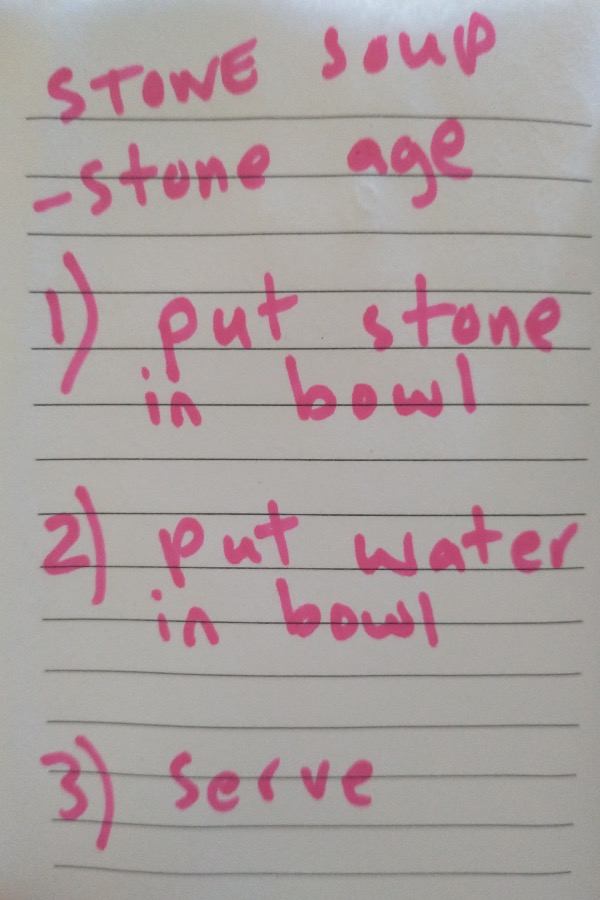 STONE soup
-stone age
1) put stone
in bowl
2) put water
in bowl
3) serve